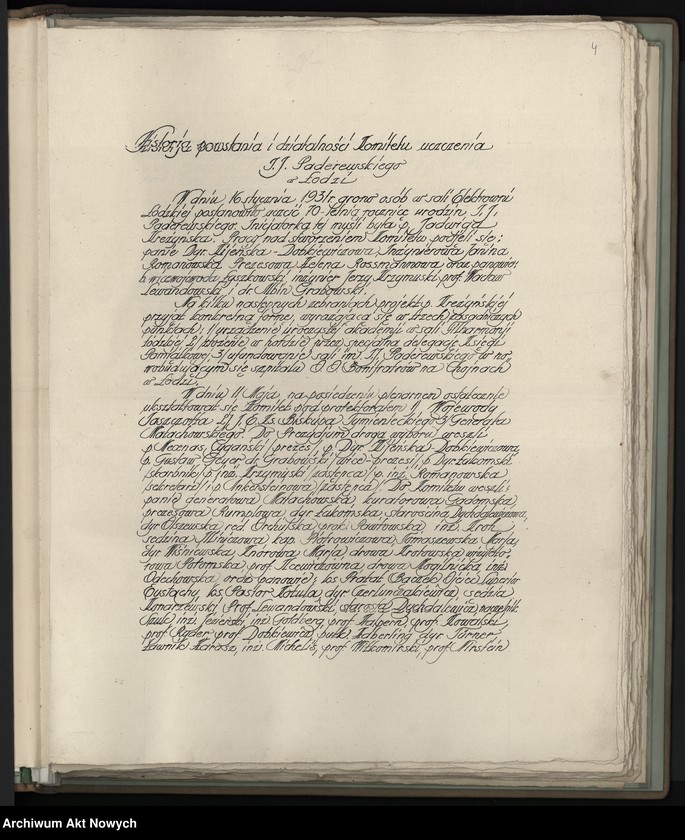 4
Historja powstania i działalności Komitetu uczczenia
I. J. Paderewskiego
w Łodzi
W dniu 16 stycznia 1931 r. grono osób w sali Elektrowni
Łódzkiej postanowiło uczcić 70-letnią rocznicę urodzin I. J.
Paderewskiego. Inicjatorką tej myśli była p. Jadwiga
Mrężyńska. Pracy nad stworzeniem Komitetu podjęli się:
panie Dyr. Kijeńska-Dobkiewiczowa, Inżynierowa Janina
Romanowska, Prezesowa Helena Rossmannowa oraz panowie:
Łyszkowski, inżynier Jerzy Krzymuski, prof. Wacław
Lewandowski i dr. Grabowski.
Na kilku następnych zebraniach projekt p. Mrężyńskiej
przyjął konkretną formę, wyrażającą się w trzech zasadniczych
punktach: 1/ urządzenie uroczystej akademji w sali Filharmonji
łódzkiej 2/ złożenie w hołdzie przez specjalną delegację Księgi
Pamiątkowej, 3/ ufundowanie sali im. I. J. Paderewskiego w no-
wobudującym się szpitalu O. O. Bonifratrów na Chojnach
w Łodzi.
W dniu 11 Maja, na posiedzeniu plenarnem ostatecznie
ukształtował się Komitet pod protektoratem 1/ Wojewody
Jaszczołta 2/ J. E. Ks. Biskupa Tymienieckiego 3/ Generała
Małachowskiego. Do Prezydjum drogą wyboru weszli:
p. Mecenas Cygański prezes, p. Dyr. Kijeńska Dobkiewiczowa,
p. Gustaw Geyer, dr Grabowski /wice-prezesi/, p. Dyr. Łakomski
/skarbnik/ p. inż. Krzymuski /zastępca/ p. inż. Romanowska
/sekretarz/ i p. Inkersteinowa /zastępca/. Do Komitetu weszli:
panie generałowa Małachowska, kuratorowa Gadomska
prezesowa Rumplowa, dyr. Łakomska, starościna Dychdalewiczowa,
dyr Olszewska, red. Orchulska, prok. Pawłowska, inż. Kroh,
sędzina Illiniczowa, kap. Piotrowiczowa, Tomaszewska Marja,
dyr. Wiśniewska, Knorowa Marja, drowa Krohowska,
Potomska, prof. drowa Mogilnicka, inż.
Olechowska, oraz panowie: ks. Prałat Bączek, Ojciec Superior
Eustachy, ks. Pastor Kotula, dyr. Czerlunczakiewicz, sędzia
Konarzewski, Prof. Lewandowski, starosta Dychdalewicz,
Szulc, inż. Jezierski, inż. Goldberg, prof. Halpern, prof. Kowalski,
prof. Ryder, prof. Dobkiewicz, pułk. Haberling, dyr Turner,
Ławnik Harasz, inż. Michelis, prof. Witkomirski, prof. Mirstein
Archiwum Akt Nowych